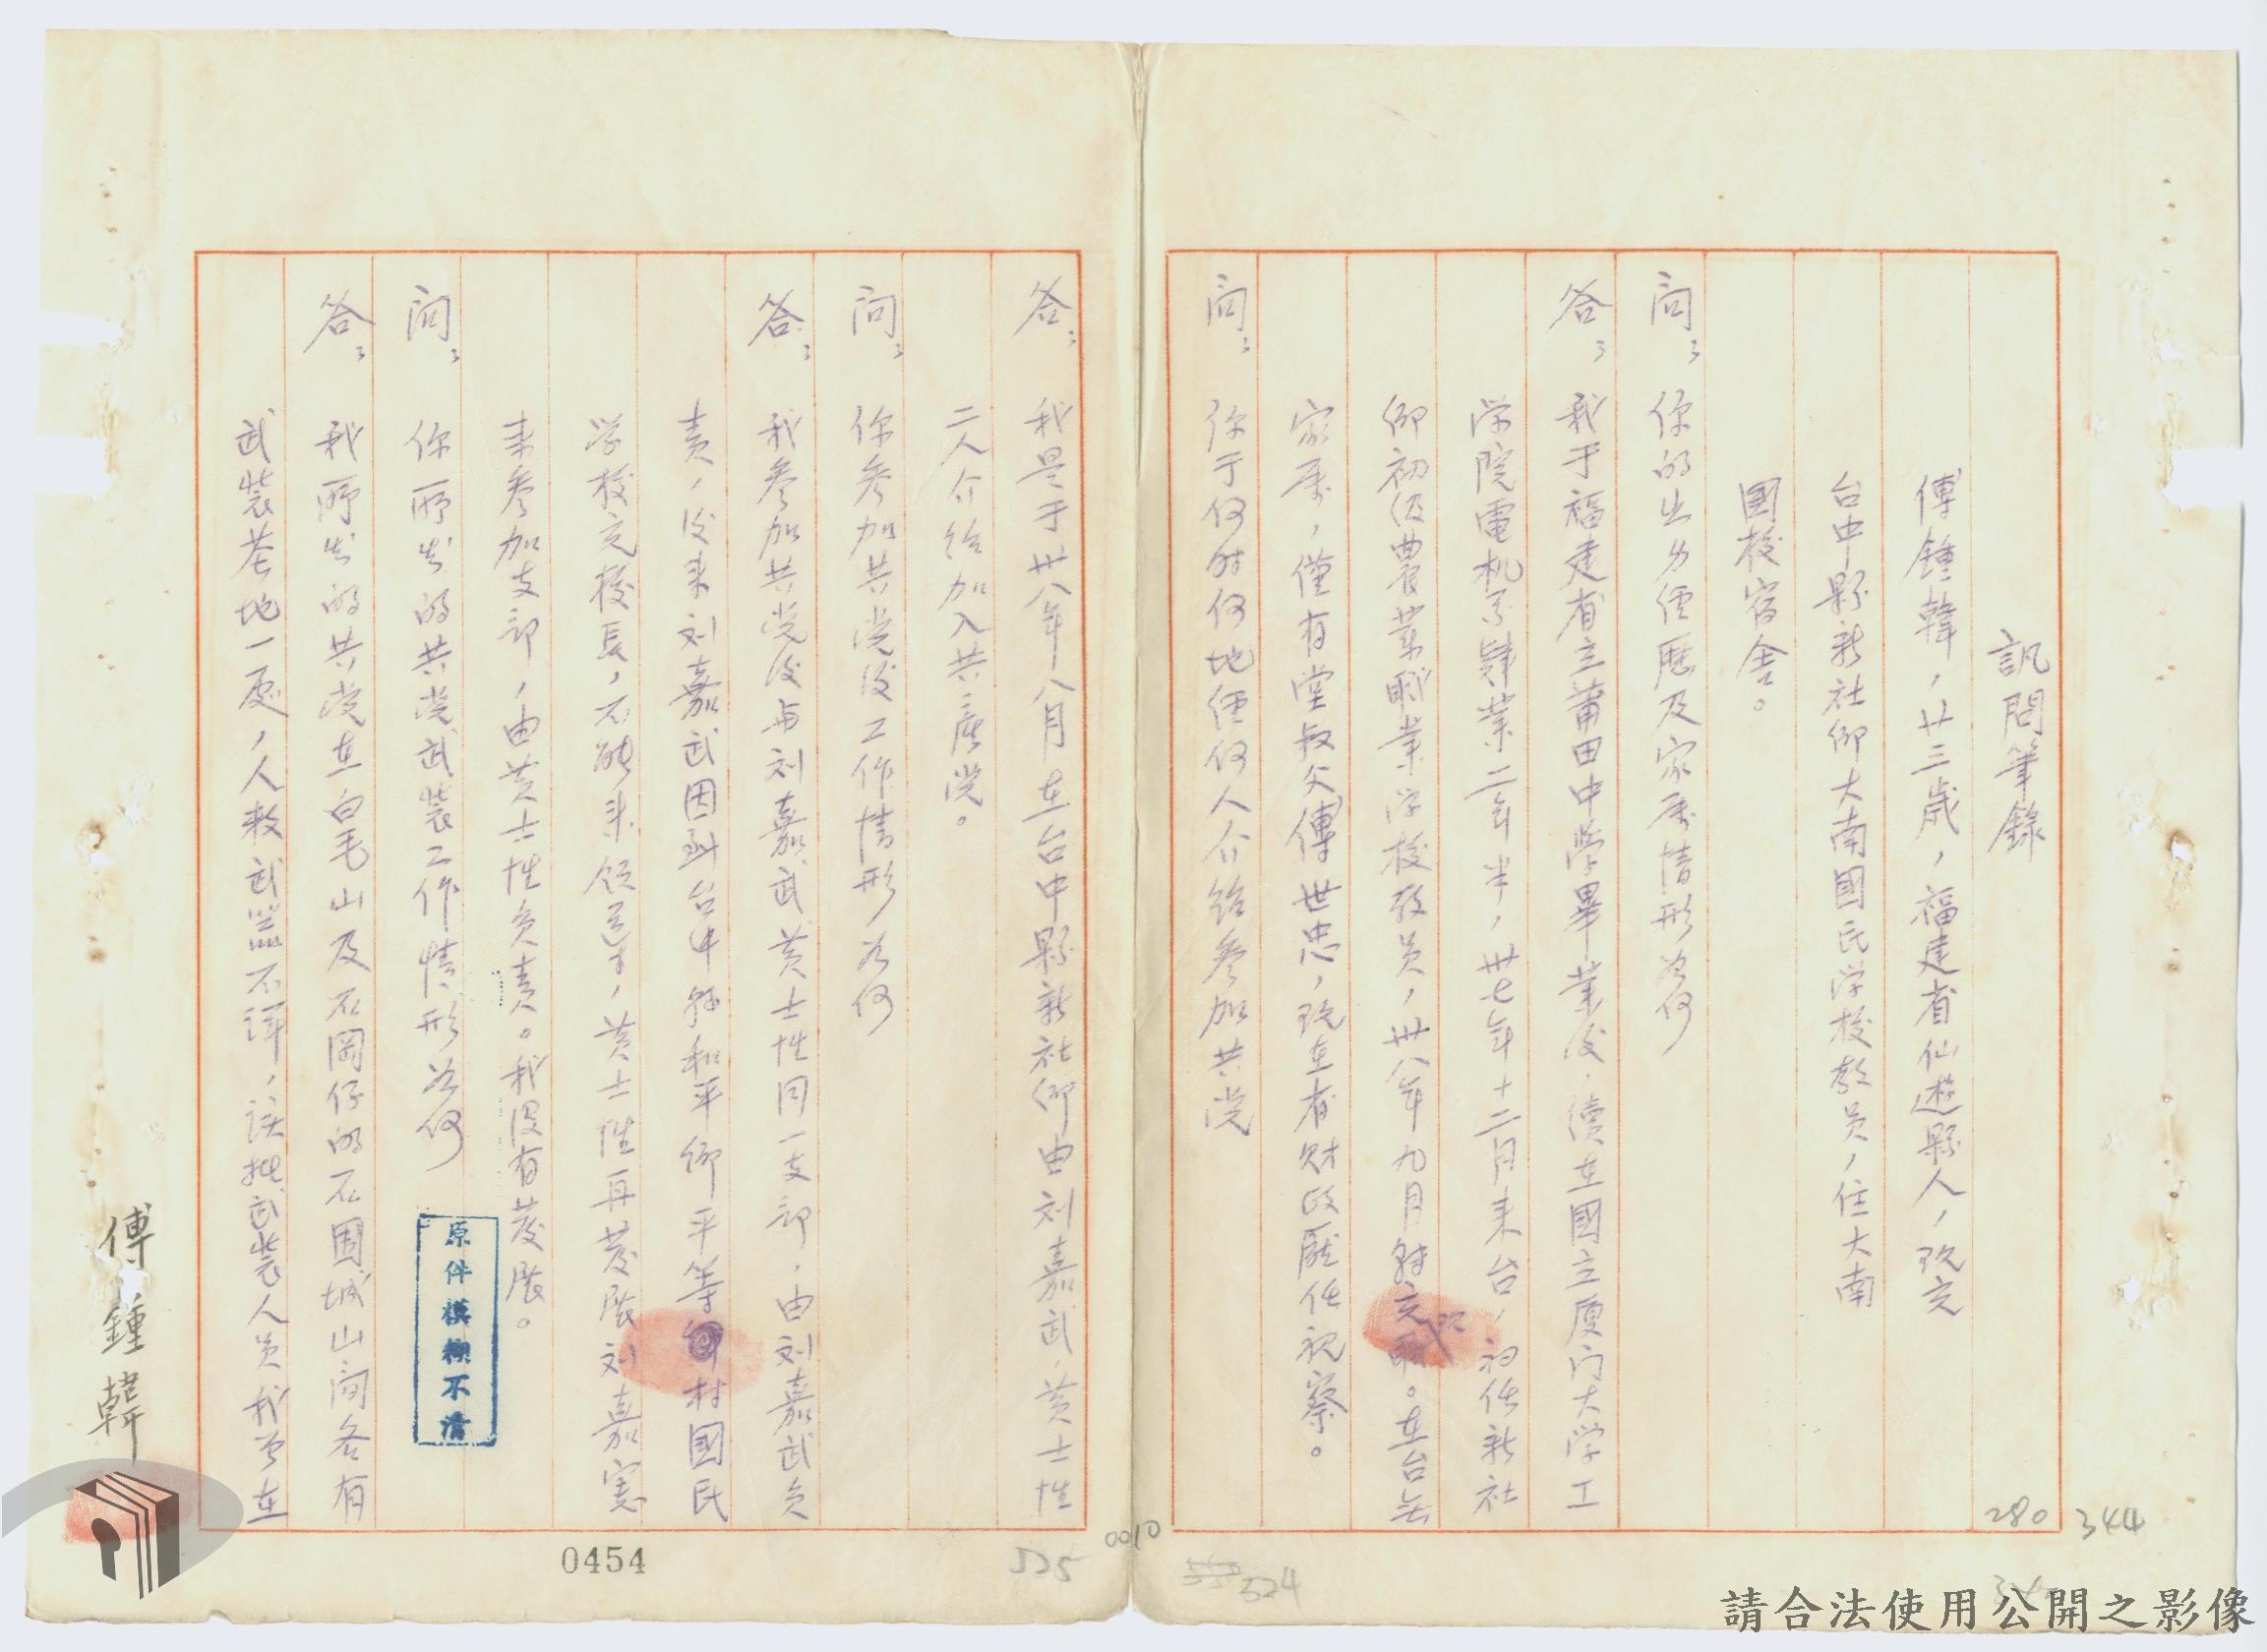 訊問筆錄
傅鍾韓，廿三歲，福建省仙遊縣人，現充
台中縣新社鄉大南國民学校教員，住大南
國校宿舍。
問：你的出身經歷及家屬情形為何
答：我于福建省立莆田中學畢業後，續在國立廈门大学工
学院電机系肄業二年半，卅七年十二月来台，初任新社
鄉初級農業職業学校教员，卅八年九月轉充現職。在台無
家屬，僅有堂叔父傅世忠，現在省財政廳任視察。
問：你于何時何地經何人介紹參加共党
答：我是于卅八年八月在台中縣新社鄉由刘嘉武、黄士性
二人介紹加入共產党。
問：你參加共党後工作情形為何
答：我參加共党後与刘嘉武、黄士性同一支部，由刘嘉武负
責，後来刘嘉武因到台中縣和平鄉平等村國民
学校充校長，不能来領導，黄士性再發展刘嘉憲
来參加支部，由黄士性负責。我没有發展。
問：你所知的共党武裝工作情形為何
答：我所知的共党在白毛山及石岡仔的石圍城山間各有
武裝基地一處，人数武器不詳，該批武裝人员我曾在
原件模糊不清
傅鍾韓
280
344
324
0010
325
0454
請合法使用公開之影像